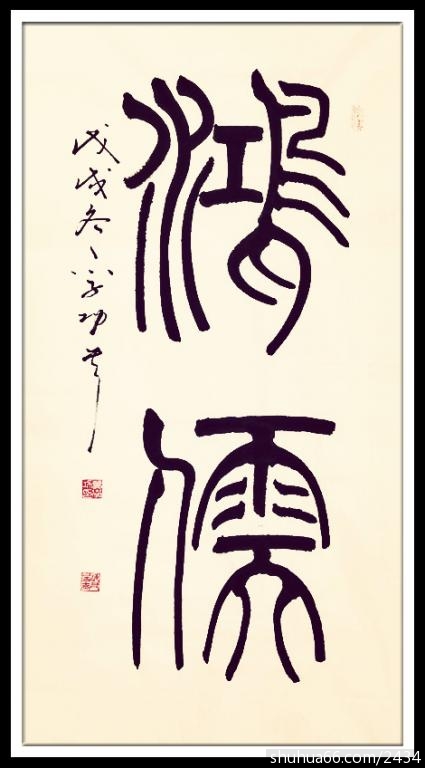 鴻儒
戊戌冬学功书
shuhua66.com/2434